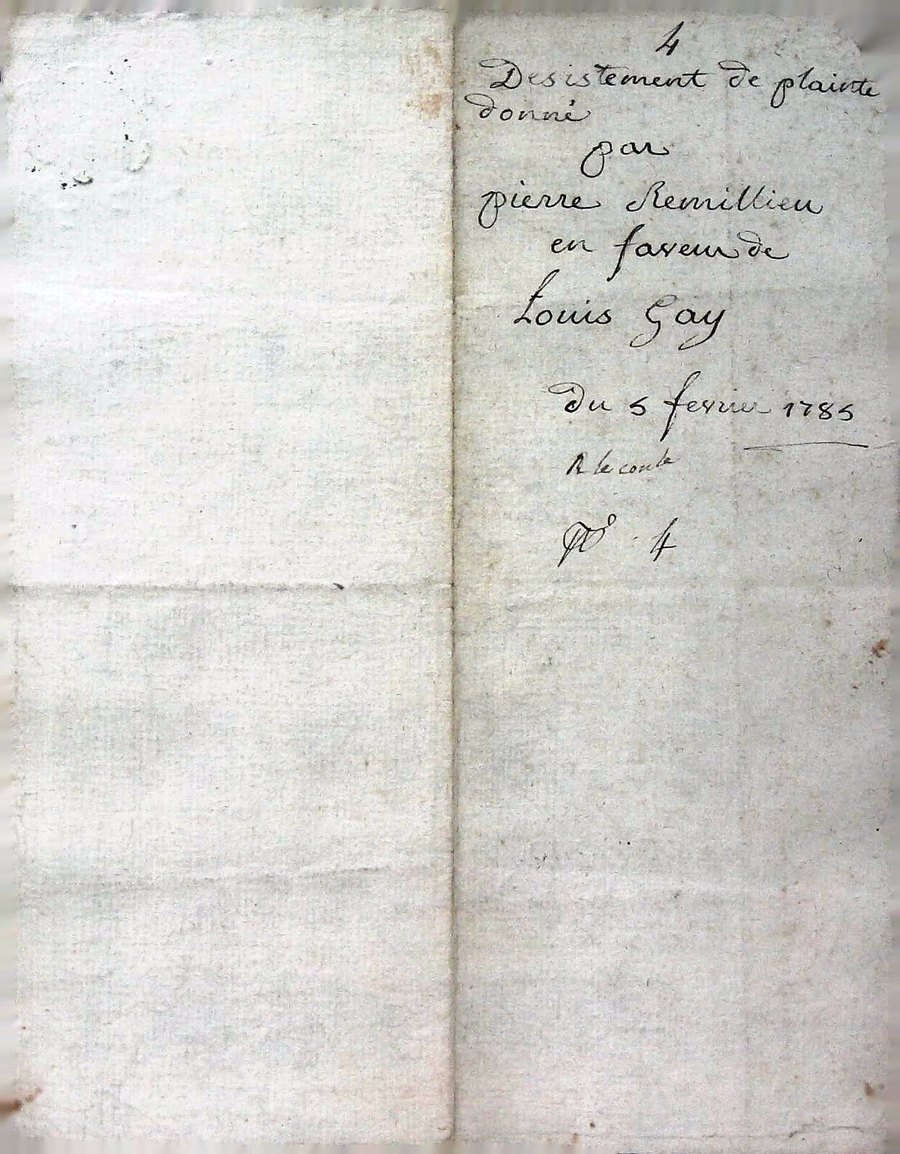 4
Desistement de plainte
donné
par
pierre Remillieu
en faveur de
Louis Gay
du 5 fevrier 1785
N° 4